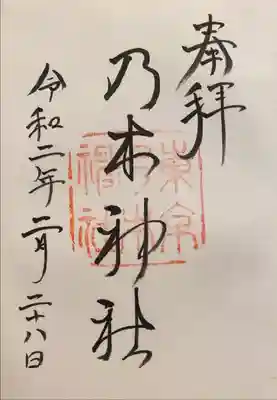 奉拝
乃木神社
令和二年二月二十八日